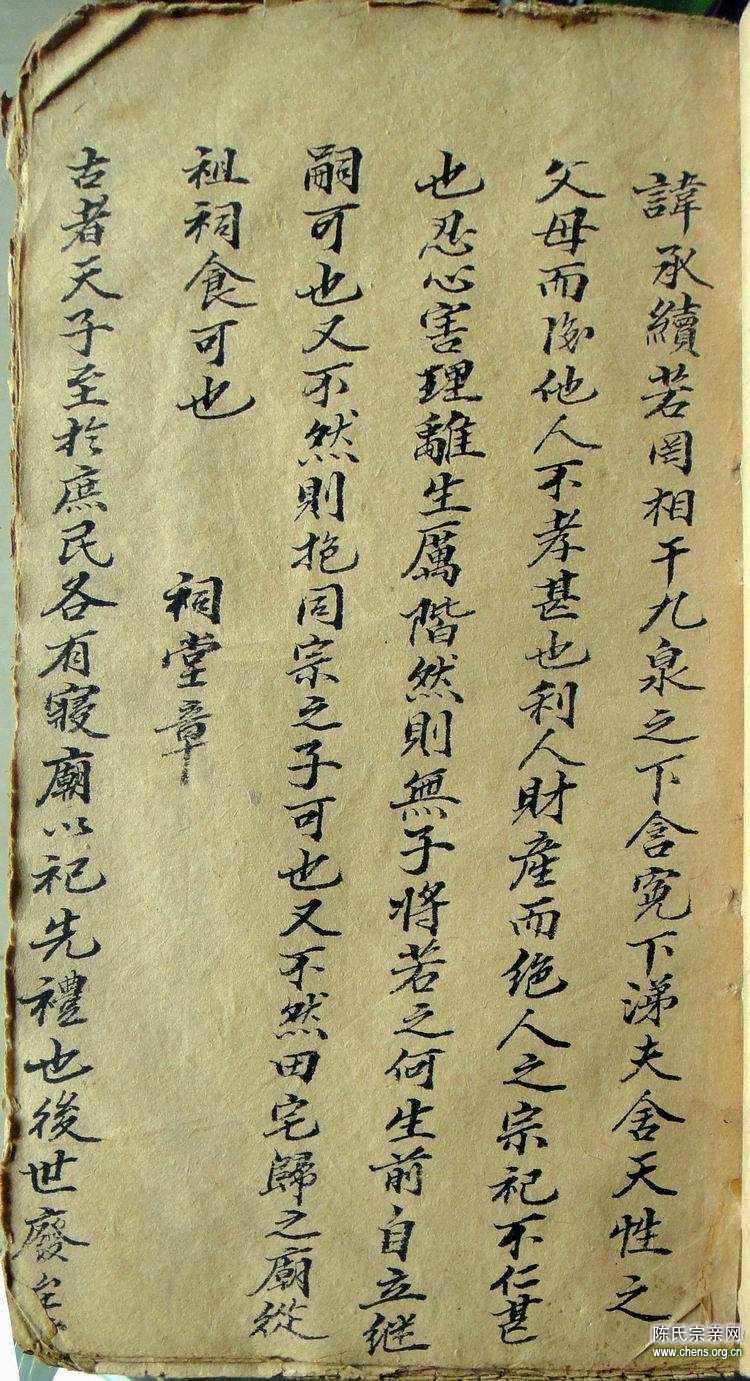 諱承續若罔相干九泉之下含寃下涕夫舍天性之
父母而後他人不孝甚也利人財產而绝人之宗祀不仁甚
也忍心害理離生厲階然則無子將若之何生前自立继
嗣可也又不然則抱同宗之子可也又不然田宅歸之廟從
祖祠食可也
祠堂章
古者天子至於庶民各有寢廟以祀先禮也後世廢
陈氏宗亲网
www.chens.org.cn